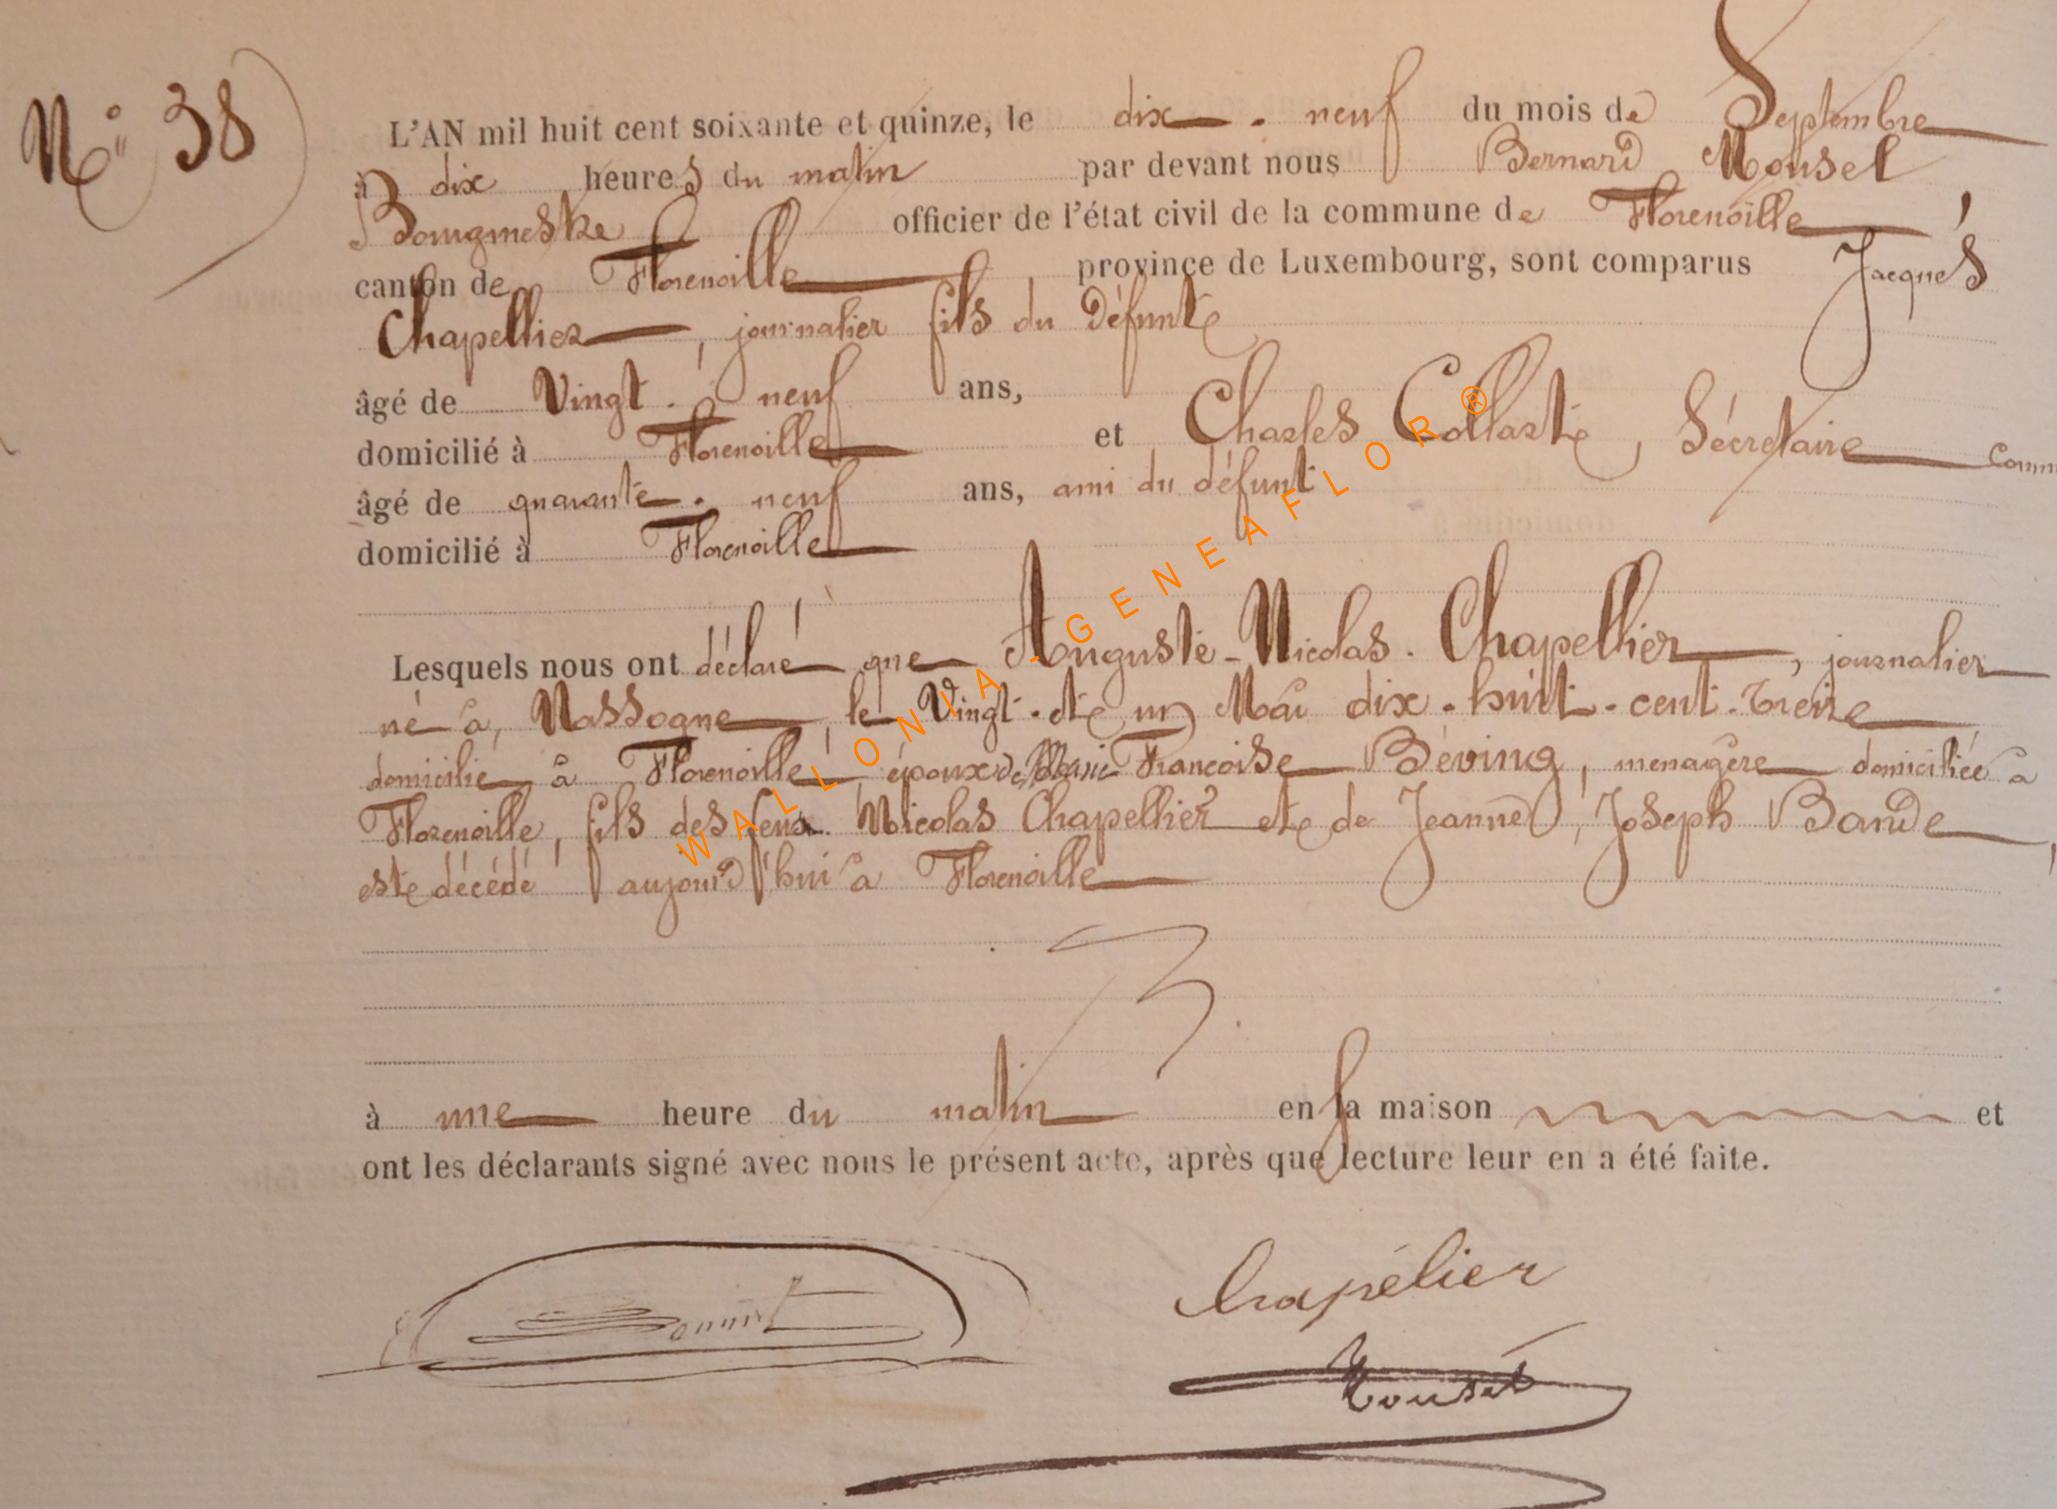 N° 38
L'AN mil huit cent soixante et quinze, le dix-neuf du mois de Septembre
à dix heures du matin par devant nous Bernard Mousel
Bourgmestre officier de l'état civil de la commune de Florenville
canton de Florenville province de Luxembourg, sont comparus Jacques
Chapellier, journalier fils du défunt
âgé de Vingt-neuf ans,
domicilié à Florenville et Charles Collart, Sécretaire comm
âgé de quarante-neuf ans, ami du défunt
domicilié à Florenville
Lesquels nous ont déclaré que Auguste-Nicolas Chapellier, journalier
né à Nassogne, le Vingt-et un Mai dix-huit-cent-treize
domicilié à Florenville, époux de Marie Françoise Béving, menagère domiciliée à
Florenville, fils des feux Nicolas Chapellier et de Jeanne, Joseph Bande,
est décédé aujourd'hui à Florenville
à une heure du matin en sa maison et
ont les déclarants signé avec nous le présent acte, après que lecture leur en a été faite.
Chapélier
Mousel
WALLONIA-GENEAFLOR®